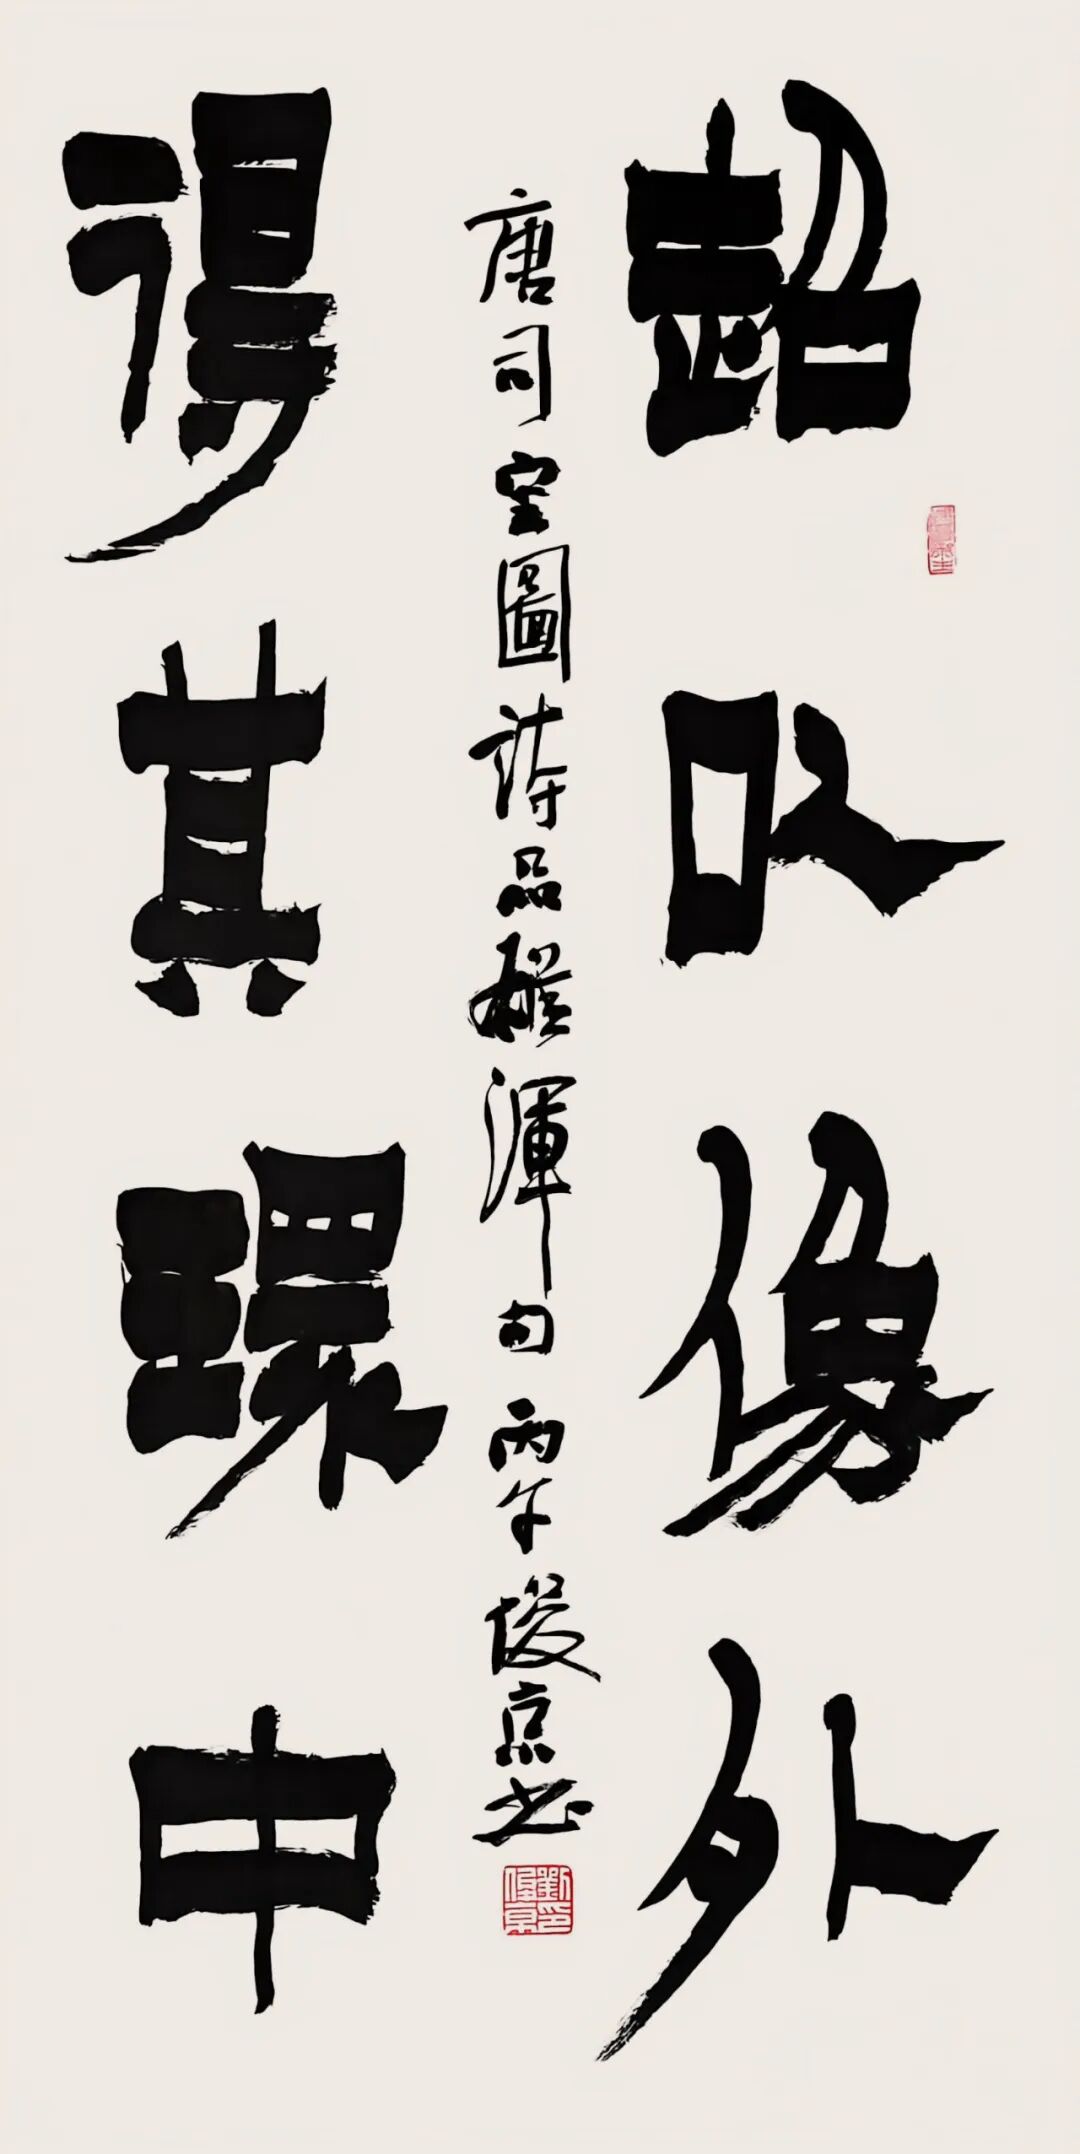 超以像外
得其環中
唐司空圖詩品雄渾句丙午俊京书
劉印俊京